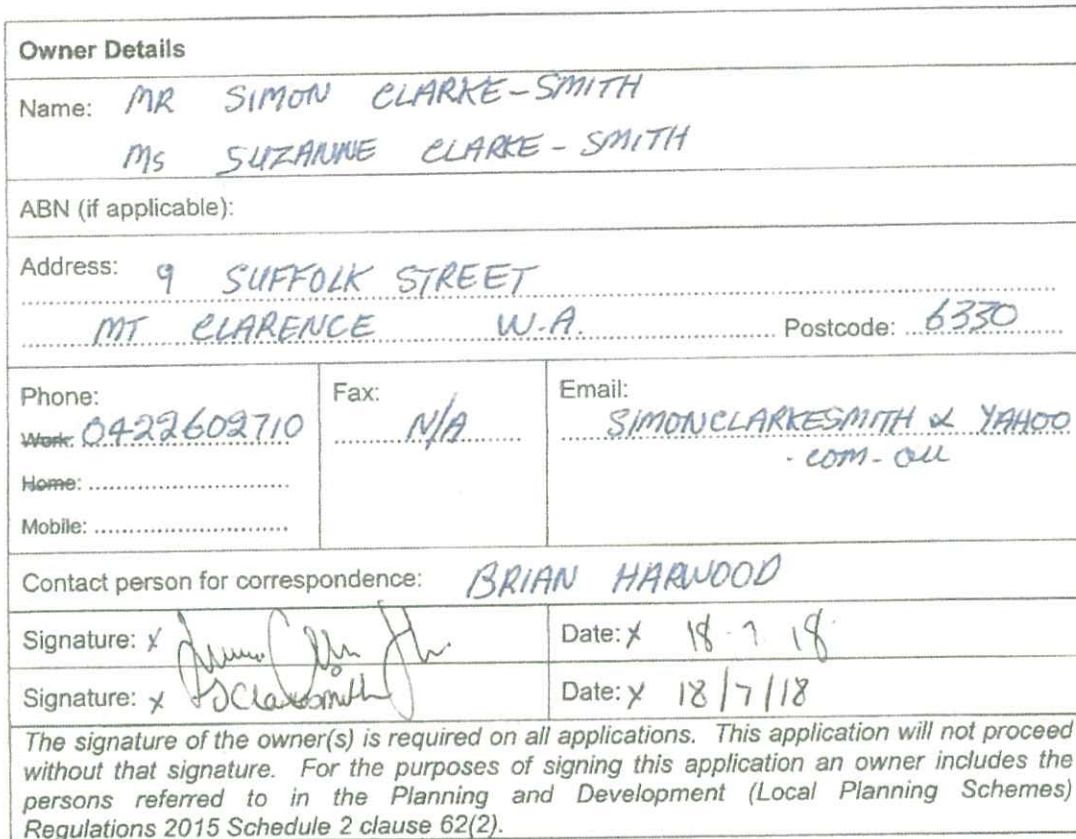 Owner Details
Name: MR SIMON CLARKE-SMITH
MS SUZANNE CLARKE-SMITH
ABN (if applicable):
Address: 9 SUFFOLK STREET
MT CLARENCE W.A. Postcode: 6330
Phone: Fax: Email:
Work: 0422602710 N/A SIMONCLARKESMITH @ YAHOO
.com.au
Home:
Mobile:
Contact person for correspondence: BRIAN HARWOOD
Signature: x Date: x 18.7.18
Signature: x SClarkesmith Date: x 18/7/18
The signature of the owner(s) is required on all applications. This application will not proceed
without that signature. For the purposes of signing this application an owner includes the
persons referred to in the Planning and Development (Local Planning Schemes)
Regulations 2015 Schedule 2 clause 62(2).